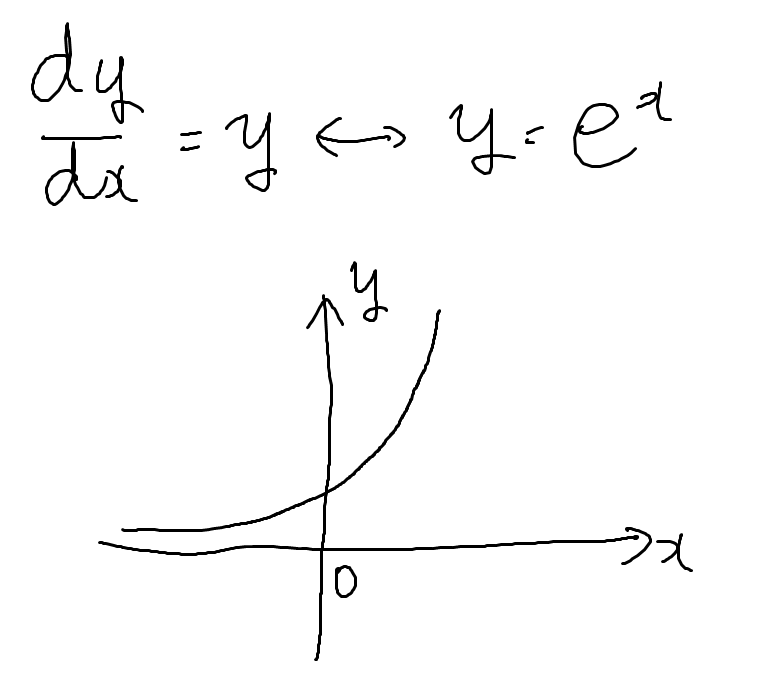 dy/dx = y ↔ y = e^x
y
x
0